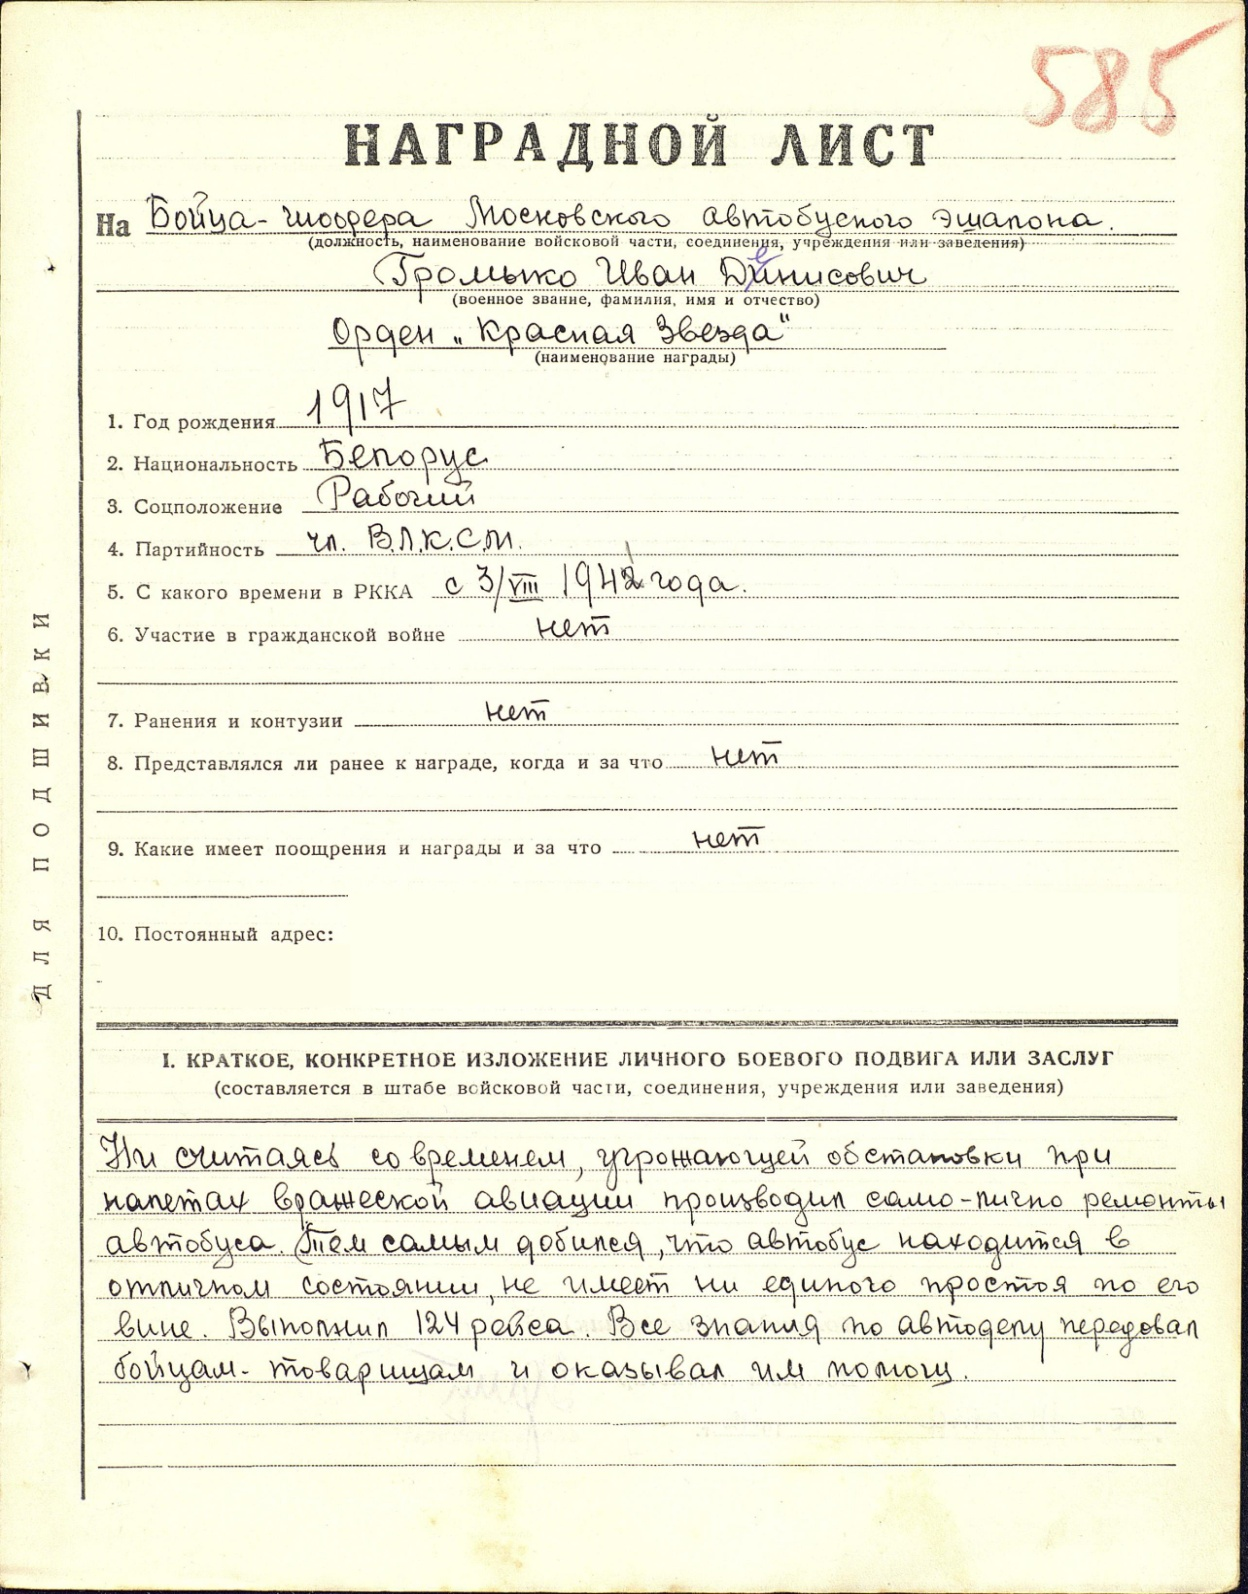 585
НАГРАДНОЙ ЛИСТ
На Бойца-шофера Московского автобуского эшалона.
(должность, наименование войсковой части, соединения, учреждения или заведения)
Громыко Иван Денисович
(военное звание, фамилия, имя и отчество)
Орден „Красная Звезда"
(наименование награды)
1. Год рождения 1917
2. Национальность Белорус
3. Соцположение Рабочий
4. Партийность чл. В.Л.К.С.М.
5. С какого времени в РККА с 3/VIII 1941 года.
6. Участие в гражданской войне нет
7. Ранения и контузии нет
8. Представлялся ли ранее к награде, когда и за что нет
9. Какие имеет поощрения и награды и за что нет
10. Постоянный адрес:
ДЛЯ ПОДШИВКИ
I. КРАТКОЕ, КОНКРЕТНОЕ ИЗЛОЖЕНИЕ ЛИЧНОГО БОЕВОГО ПОДВИГА ИЛИ ЗАСЛУГ
(составляется в штабе войсковой части, соединения, учреждения или заведения)
Ни считаясь со временем, угрожающей обстановки при
налетах вражеской авиации производил само-лично ремонты
автобуса. Тем самым добился, что автобус находится в
отличном состоянии, не имеет ни единого простоя по его
вине. Выполнил 124 рейса. Все знания по автоделу передовал
бойцам-товарищам и оказывал им помощ.